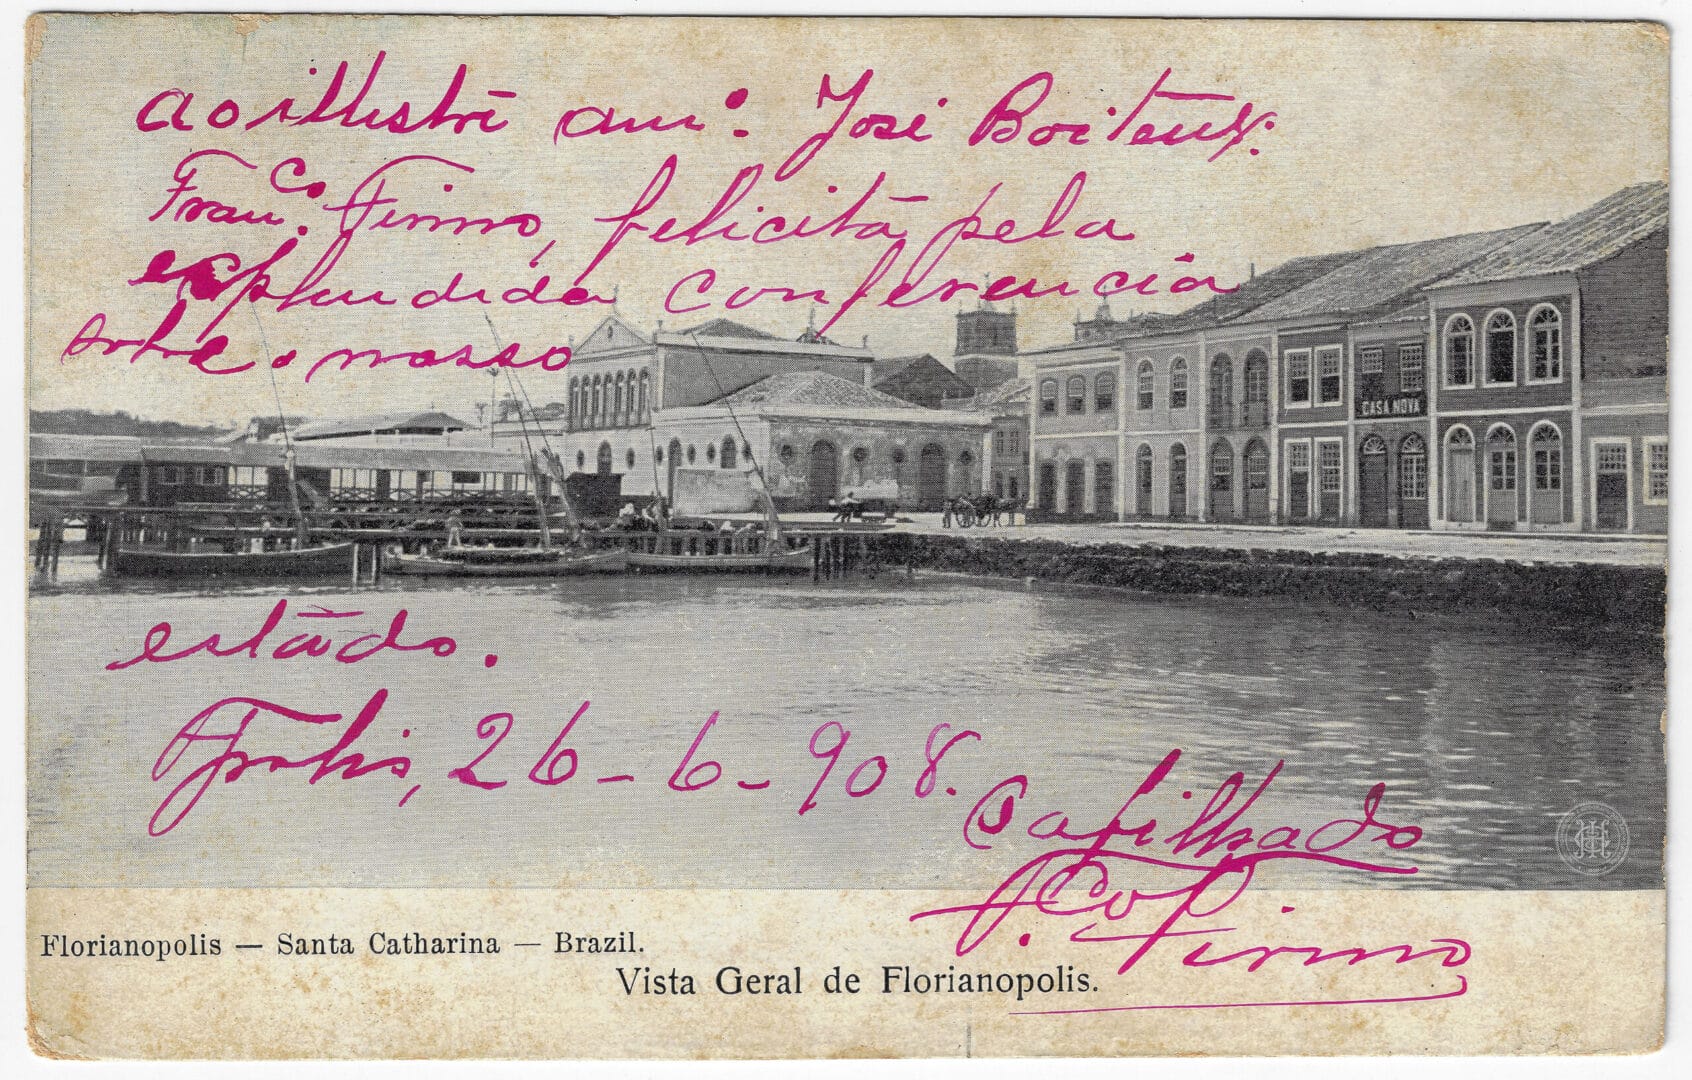 Ao illustre am.º José Boiteux.
Fran.co Firmo, felicita pela
explendida conferencia
sobre o nosso
CASA NOVA
estado.
Fpolis, 26-6-908.
O afilhado
F.co Firmo
Florianopolis — Santa Catharina — Brazil.
Vista Geral de Florianopolis.